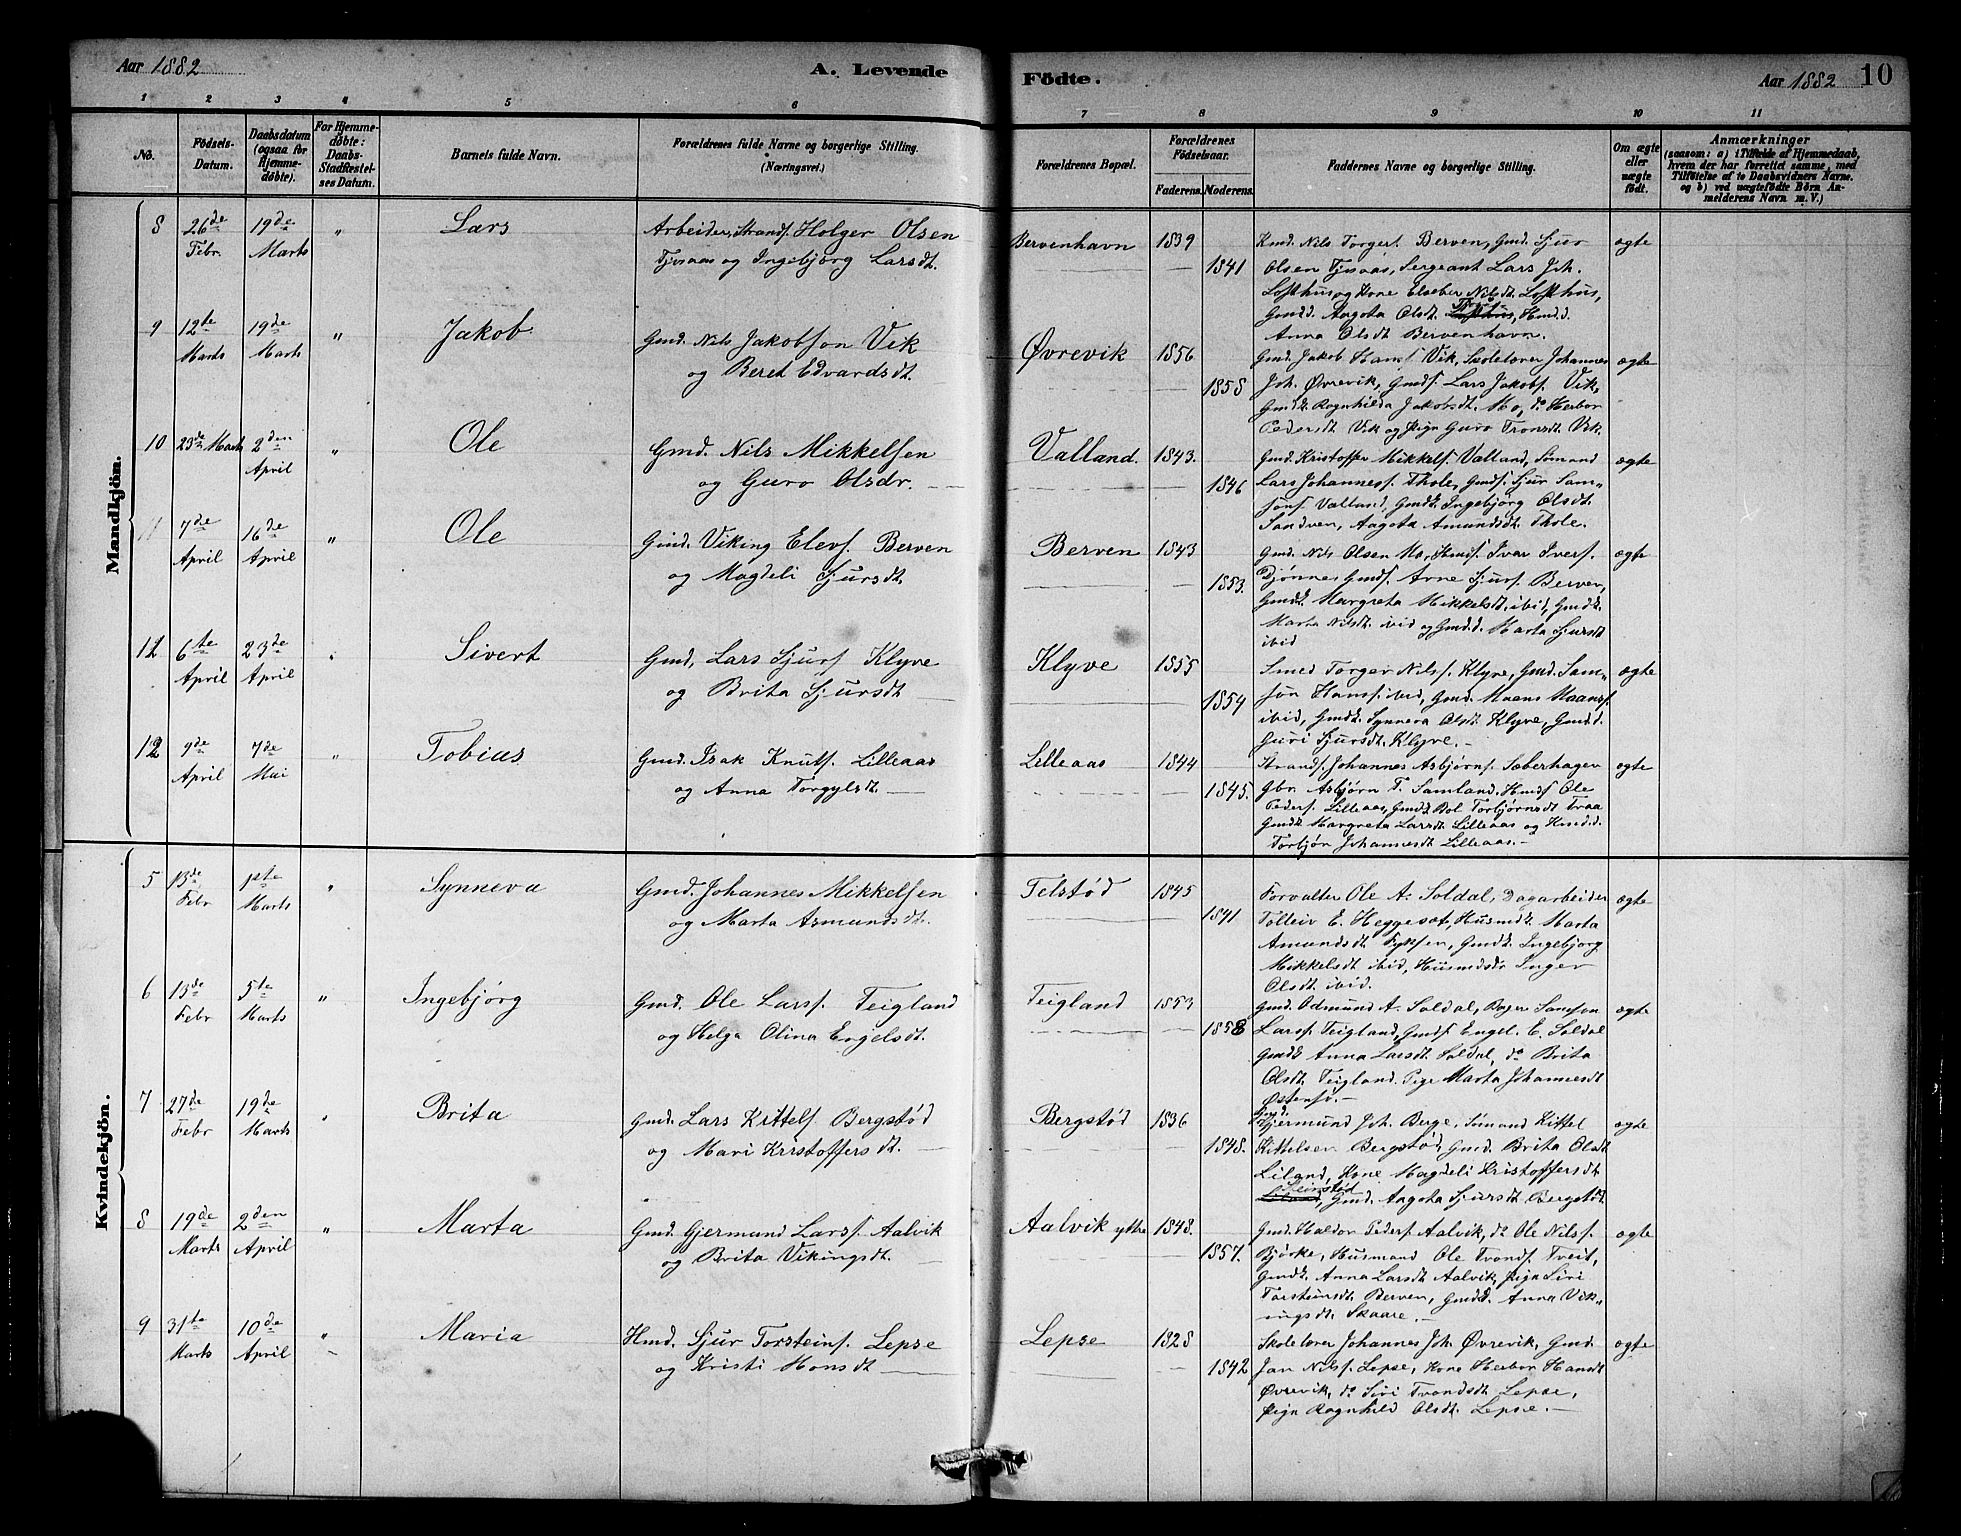 Aar 1882
A. Levende
Födte.
Aar 1882
10
1 2 3 4 5 6 7 8 9 10 11
No.
Födsels-Datum.
Daabsdatum (ogsaa for Hjemme-döbte).
For Hjemme-döbte: Daabs-Stadfæstel-ses Datum.
Barnets fulde Navn.
Forældrenes fulde Navne og borgerlige Stilling. (Næringsvei.)
Forældrenes Bopæl.
Forældrenes Födselsaar.
Faderens. Moderens.
Faddernes Navne og borgerlige Stilling.
Om ægte eller uægte födt.
Anmærkninger
(saasom: a) i Tilfælde af Hjemmedaab, hvem der har forrettet samme, med Tilföielse af to Daabsvidners Navne. og b) ved uægtefödte Börn An-melderens Navn m. V.)
Mandkjön.
8 26de Febr 19de Marts " Lars
Arbeider, Strands. Holger Olsen
Tjisaas og Ingebjörg Larsdt.
Bervenhavn 1839 1841
Kmd. Nils Torgers. Berven, Gmd. Sjur
Olsen Tjisaas, Sergeant Lars Joh.
Lofthus og Kone Elseber Nilsdt. Lofthus,
Gmdd. Aagota Olsdt. Lofthus, Hmd.d.
Anna Olsdt Bervenhavn.
ægte
9 12te Marts 19de Marts " Jakob
Gmd. Nils Jakobson Vik
og Beret Edvardsdt.
Øvrevik 1856 1858
Gmd. Jakob Hans. Vik, Skolelærer Johannes
Joh. Øvrevik, Gmds. Lars Jakobs. Vik,
Gmdk. Ragnhilda Jakobsdt. Mo, do Herbor
Pedersdt Vik og Pign Guro Tronsdt Vik.
ægte
10 23de Marts 2den April " Ole
Gmd. Nils Mikkelsen
og Guro Olsdr.
Valland. 1843. 1846
Gmd. Kristoffer Mikkels. Valland, Sømand
Lars Johanness. Thole, Gmds. Sjur Sam-
sons. Valland, Gmdk. Ingebjörg Olsdt.
Sandven, Aagota Amundsdt. Thole.
ægte
11 7de April 16de April " Ole
Gmd. Viking Elevs. Berven
og Magdeli Sjursdt.
Berven 1843 1853.
Gmd. Nils Olsen Mo, Hmds. Ivar Ivers.
Djönne, Gmds. Arne Sjurs. Berven,
Gmdk. Margreta Mikkelsdt. ibid, Gmdk.
Marta Nilsdt. ibid og Gmd.d. Marta Sjursdt
ibid
ægte
12 6te April 23de April " Sivert
Gmd. Lars Sjurs. Klyve
og Brita Sjursdt
Klyve 1855 1854
Smed Torger Nilss. Klyve, Gmd. Sam-
son Hanss. ibid, Gmd. Maans Maanss.
ibid, Gmdk. Synneva Olsdt. Klyve, Gmd.d.
Guri Sjursdt. Klyve.
ægte
12 9de April 7de Mai " Tobias
Gmd. Isak Knuts. Lilleaas
og Anna Torgylsdt.
Lilleaas 1844 1845.
Strands. Johannes Asbjörns. Sæberhagen
Gbr. Asbjörn T. Samland, Hmds Ole
Peders. Lilleaas, Gmdk Bol Torbjörnsdt Traa
Gmdk. Margreta Larsdt. Lilleaas og Kmd.d.
Torbjör Johannesdt Lilleaas.
ægte
Kvindekjön.
5 13de Febr 1ste Marts " Synneva
Gmd. Johannes Mikkelsen
og Marta Asmundsdt.
Telstød 1845 1841
Forvalter Ole A. Soldal, Dagarbeider
Tolleiv E. Heggeset, Husmdk. Marta
Amundsdt Fyksen, Gmdk. Ingebjorg
Mikkelsdt ibid, Husmdsdr Inger
Olsdt ibid.
ægte
6 13de Febr 5te Marts " Ingebjörg
Gmd. Ole Larss. Teigland
og Helga Olina Engelsdt.
Teigland 1853 1858
Gmd. Odmund A. Soldal, Bager Samson
Larss. Teigland, Gmds Engel. E. Soldal
Gmdk Anna Larsdt Soldal, do Brita
Olsdt Teigland. Pige Marta Johannesdt
Östensö.
ægte
7 27de Febr 19de Marts " Brita
Gmd. Lars Kittels. Bergstød
og Mari Kristoffersdt.
Bergstød 1836 1848.
Gmd.
Gjermund Joh. Berge, Sömand Kittel
Kittelsen Bergstød, Gmd. Brita Olsdt
Liland, Kone Magdeli Kristoffersdt
Steinstød
Gmd. Aagota Sjursdt Bergstød
ægte
8 19de Marts 2den April " Marta
Gmd. Gjermund Larss. Aalvik
og Brita Vikingsdt.
Aalvik ytre 1848. 1857.
Gmd. Haldor Peders. Aalvik, do Ole Nilss.
Bjórke, Husmand Ole Tronds. Treit,
Gmdk. Anna Larsdt Aalvik, Pign Siri
Torsteinsdt Berven, Gmdd. Anna Vik-
ingsdt Skaare.
ægte
9 31te Marts 10de April " Maria
Hmd. Sjur Torsteins. Lepse
og Kristi Hansdt
Lepse 1828 1842
Skolelærer Johannes Joh. Øvrevik, Gmd.
Jan Nilss. Lepse, Kone Herbor Hansdt
Øvrevik, do Siri Trondsdt Lepse,
Pign Ragnhild Olsdt. Lepse.
ægte